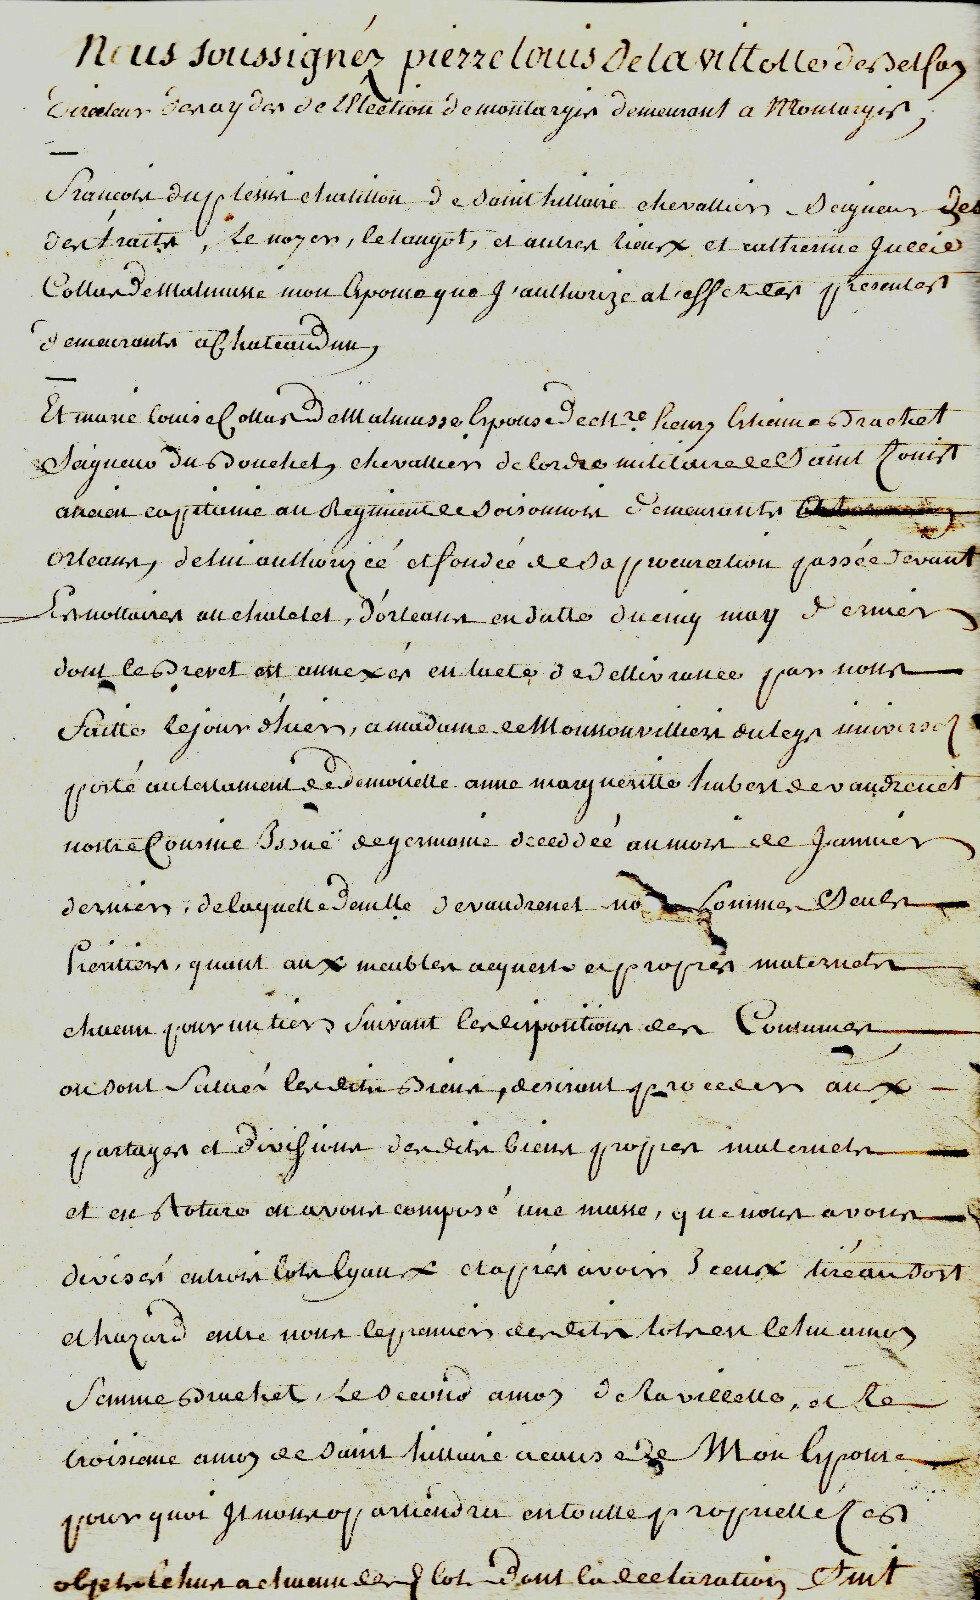 Nous soussignéz pierre louis de la villette des
directeur des aydes de l'Election de montargis demeurant a Montargis,
françois du plessis chatillon de saint hillaire chevallier seigneur des
des traits, le noyer, le taugot, et autres lieux et catherine Jullie
Collas de Malmusse mon Epouse que J'authorize a l'effet des presentes
demeurants a Chateaudun,
Et marie louise Collas de Malmusse Epouse de Mre. henry Estienne Brachet
Seigneur du Bouchet, chevallier de l'ordre militaire de Saint Louis
ancien capitaine au Regiment de soisonnois demeurante
Orleans, de lui authorizéé et fondéé de sa procuration passéé devant
Les nottaires au chatelet, d'orleans en datte du cinq may dernier
dont le Brevet est annexés en lacte de dellivrance par nous
faitte le jour d'hier, a madame de Monmonvilliers du legs universel
porté au testament de demoiselle anne margueritte hubert de vaudreuet
nostre Cousine Issuë de germaine deceddéé au mois de Janvier
dernier, de laquelle delle devaudreuet sommes Seuls
heritiers, quant aux meubles acquests et propres maternels
chacun pour un tiers suivant les dispositions des Coutumes
ou sont Situés lesdits Biens, desirant proceder aux
partages et divisions desdits biens propres maternels
et en Roture en avons composé une masse, que nous avons
divisés en trois lots Egaux et après avoir Iceux tiré au sort
et hazard entre nous le premier desdits lots est Echu a moy
femme Brachet, le second a moy de la villette, et le
troisieme a moy de saint hillaire a cause de Mon Epouse
pour quoi Il nous apartiendra en toutte proprietté Les
objets Echus a chacun des lots dont la declaration Suit